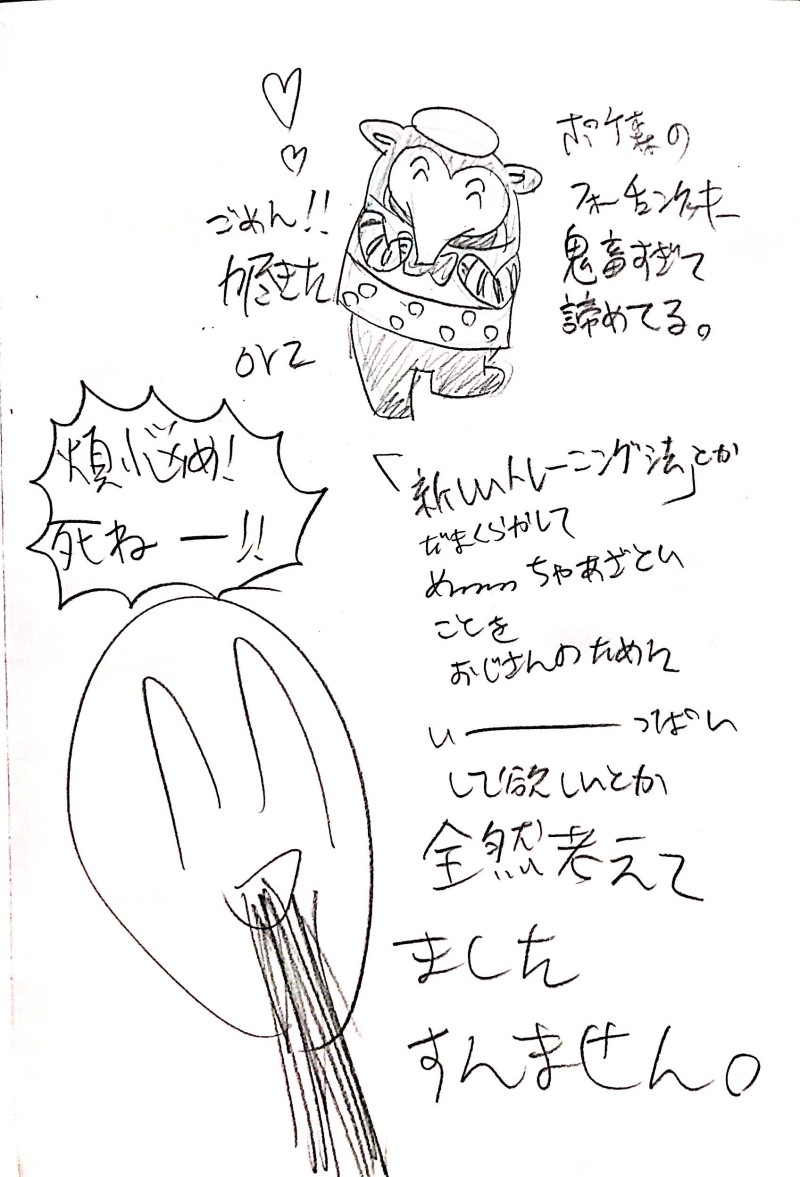 ポケ森の
フォーチュンクッキー
鬼畜すぎて
諦めてる。
ごめん!!
力尽きた
orz
煩悩め!
死ねー!!
「新しいトレーニング法」とか
だまくらかして
めっっっちゃあざとい
ことを
おじさんのために
い――――っぱい
して欲しいとか
全然考えて
ました
すんません。